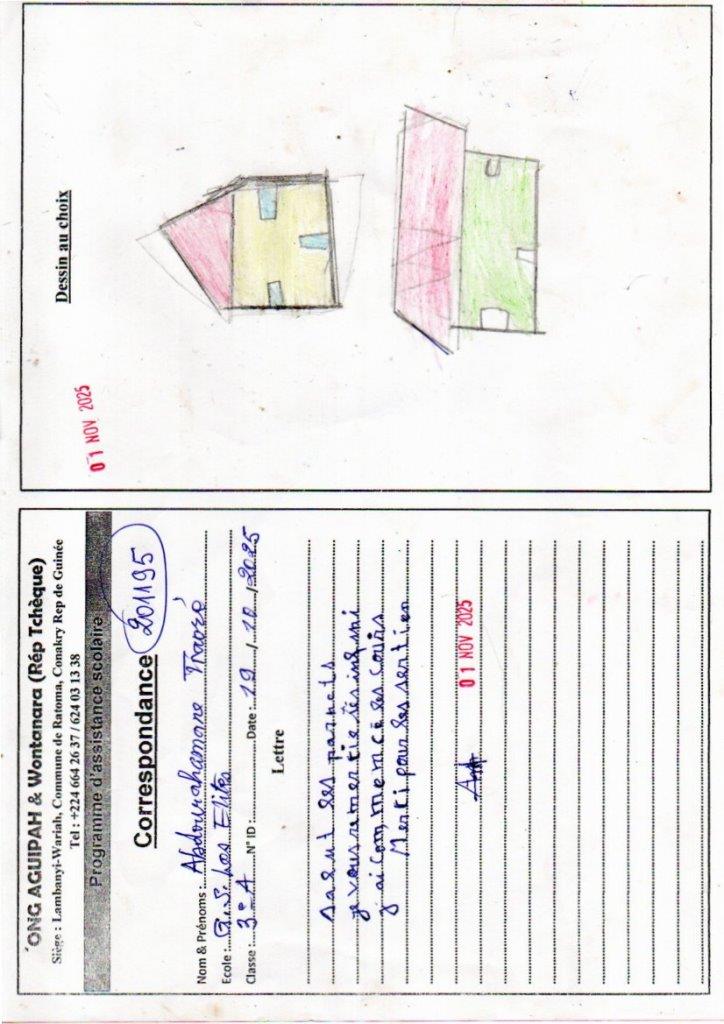 ONG AGUIPAH & Wontanara (Rép Tchèque)
Siège : Lambanyi-Wariah, Commune de Ratoma, Conakry Rep de Guinée
Tel : +224 664 26 37 / 624 03 13 38
Programme d'assistance scolaire
Correspondance 201195
Nom & Prénoms : Abdourahamane Traoré
Ecole : G.S. Les Elites
Classe : 3e A N° ID : Date : 19 / 10 / 2025
Lettre
salut les parnets
je vous remertie
j'ai commencé les cours
Merti pour les sertien
01 NOV 2025
01 NOV 2025
Dessin au choix